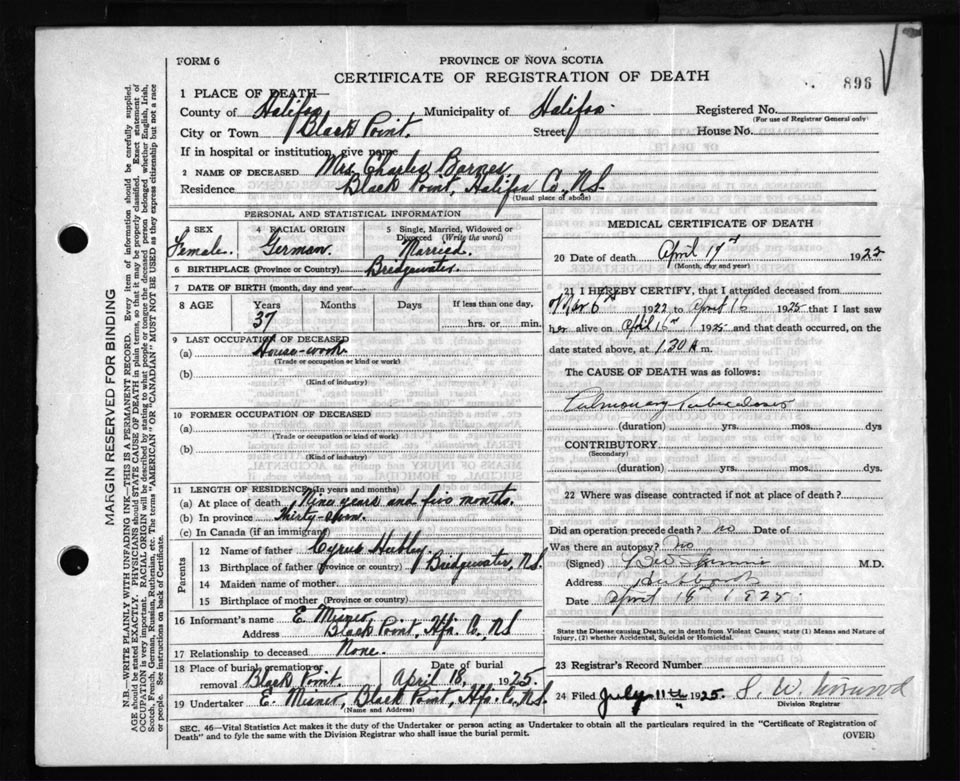 FORM 6
PROVINCE OF NOVA SCOTIA
CERTIFICATE OF REGISTRATION OF DEATH
896
1 PLACE OF DEATH—
County of Halifax Municipality of Halifax. Registered No.
(For use of Registrar General only)
City or Town Black Point. Street House No.
If in hospital or institution, give name
2 NAME OF DECEASED Mrs Charles Barnes
Residence Black Point, Halifax Co., N.S.
(Usual place of abode)
PERSONAL AND STATISTICAL INFORMATION
3 SEX 4 RACIAL ORIGIN 5 Single, Married, Widowed or
Divorced (Write the word)
Female. German. Married.
6 BIRTHPLACE (Province or Country) Bridgewater.
7 DATE OF BIRTH (month, day and year)
8 AGE Years Months Days If less than one day.
37 hrs. or min.
9 LAST OCCUPATION OF DECEASED
(a) House-work.
(Trade or occupation or kind of work)
(b)
(Kind of industry)
10 FORMER OCCUPATION OF DECEASED
(a)
(Trade or occupation or kind of work)
(b)
(Kind of industry)
11 LENGTH OF RESIDENCE (In years and months)
(a) At place of death Nine years and five months.
(b) In province Thirty-seven.
(c) In Canada (if an immigrant)
Parents
12 Name of father Cyrus Hubley.
13 Birthplace of father (province or country) Bridgewater, N.S.
14 Maiden name of mother
15 Birthplace of mother (Province or country)
16 Informant's name E. Misner
Address Black Point, Hfx. Co., N.S
17 Relationship to deceased None.
18 Place of burial, cremation or removal Black Point. Date of burial April 18, 1925.
19 Undertaker E. Misner, Black Point, Hfx. Co., N.S.
(Name and Address)
MEDICAL CERTIFICATE OF DEATH
20 Date of death April 17th 1925
(Month, day and year)
21 I HEREBY CERTIFY, that I attended deceased from
Mar 6th 1922 to April 16 1925 that I last saw
her alive on April 16th 1925 and that death occurred, on the
date stated above, at 1.30 A m.
The CAUSE OF DEATH was as follows:
Pulmonary Tuberculosis
(duration) yrs. mos. dys
CONTRIBUTORY
(Secondary)
(duration) yrs. mos. dys.
22 Where was disease contracted if not at place of death?
Did an operation precede death? no Date of
Was there an autopsy? no
(Signed) M.D.
Address Hubbards
Date April 18th 1925.
State the Disease causing Death, or in death from Violent Causes, state (1) Means and Nature of
Injury, (2) whether Accidental, Suicidal or Homicidal.
23 Registrar's Record Number
24 Filed July 11th 1925. S. W.
Division Registrar
SEC. 46—Vital Statistics Act makes it the duty of the Undertaker or person acting as Undertaker to obtain all the particulars required in the "Certificate of Registration of
Death" and to fyle the same with the Division Registrar who shall issue the burial permit.
(OVER)
MARGIN RESERVED FOR BINDING
N.B.—WRITE PLAINLY WITH UNFADING INK—THIS IS A PERMANENT RECORD. Every item of information should be carefully supplied.
AGE should be stated EXACTLY. PHYSICIANS should STATE CAUSE OF DEATH in plain terms, so that it may be properly classified. Exact statement of
OCCUPATION is very important. RACIAL ORIGIN will be described by stating to what people or tongue the deceased person belonged whether English, Irish,
Scotch, French, German, Russian, Ruthenian, etc. The terms "AMERICAN" or "CANADIAN" MUST NOT BE USED as they express citizenship but not a race
or people. See instructions on back of Certificate.